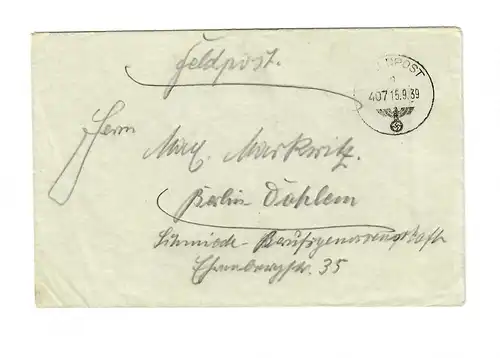 Feldpost.
FELDPOST
a
407 15.9.39
Herrn
Max. Markwitz.
Berlin Dahlem
Schmiede-Berufsgenossenschaft
35